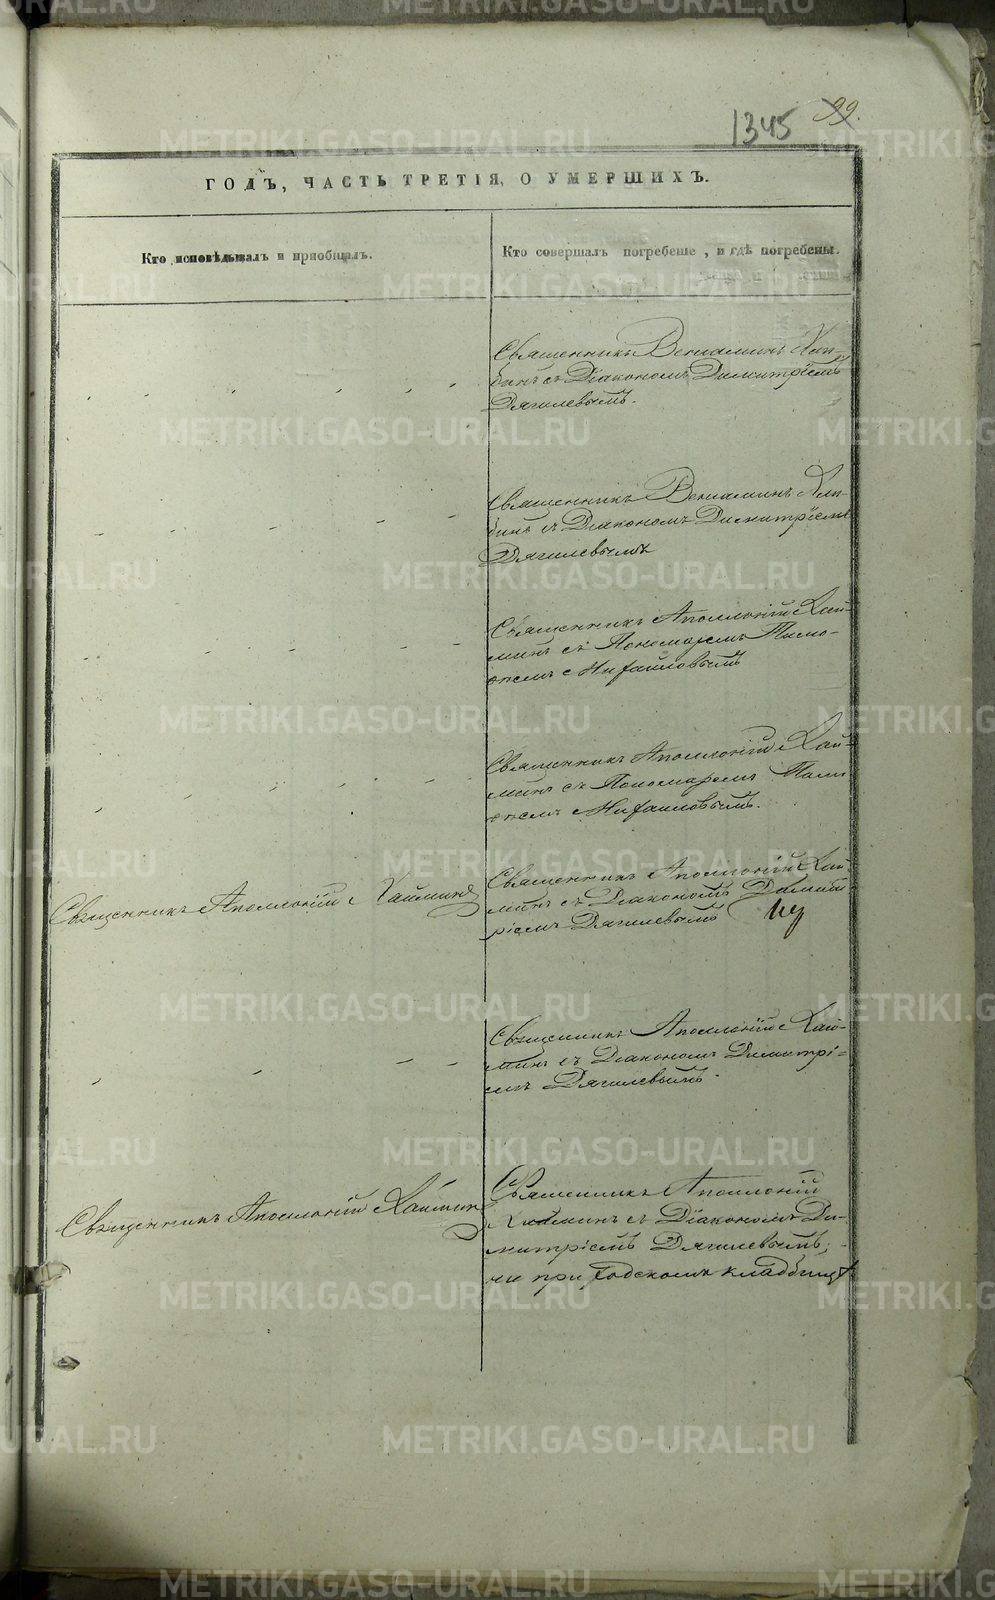 1345 99.
ГОДЪ, ЧАСТЬ ТРЕТІЯ, О УМЕРШИХЪ.
Кто исповѣдывалъ и пріобщалъ.
Кто совершалъ погребеніе, и гдѣ погребены.
Священникъ Веніаминъ
съ Діакономъ Димитріемъ
Дягилевымъ.
Священникъ Веніаминъ
съ Діакономъ Димитріемъ
Дягилевымъ
Священникъ Аполлоній Хай-
минъ съ Пономаремъ Тимо-
ѳеемъ Михайловымъ
Священникъ Аполлоній Хай-
минъ съ Пономаремъ Тимо
ѳеемъ Михайловымъ.
Священникъ Аполлоній Хайминъ
Священникъ Аполлоній Хай-
минъ съ Діакономъ Димит
ріемъ Дягилевымъ
Священникъ Аполлоній Хай-
минъ съ Діакономъ Димитрі=
емъ Дягилевымъ.
Священникъ Аполлоній Хайминъ
Священникъ Аполлоній
Хайминъ съ Діакономъ Ди-
митріемъ Дягилевымъ;
на приходскомъ кладбищѣ
METRIKI.GASO-URAL.RU